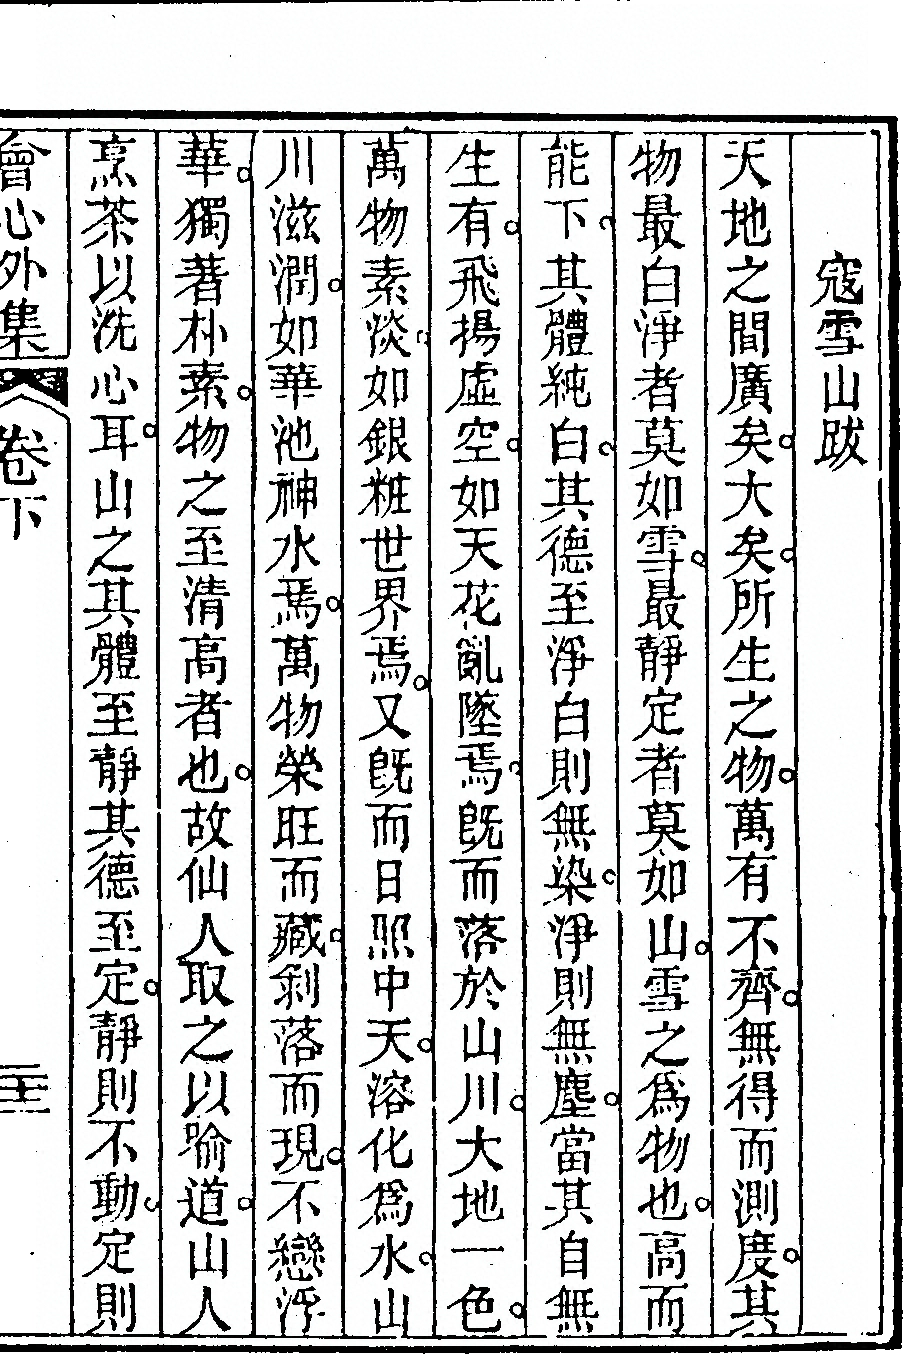 寇雪山跋
天地之間廣矣。大矣。所生之物。萬有不齊。無得而測度。其
物最白淨者莫如雪。最靜定者莫如山。雪之爲物也。高而
能下。其體純白。其德至淨白則無染。淨則無塵。當其自無
生有。飛揚虛空。如天花亂墜焉。旣而落於山川。大地一色。
萬物素淡。如銀粧世界焉。又旣而日照中天。溶化爲水。山
川滋潤。如華池神水焉。萬物榮旺而藏。剥落而現。不戀浮
華。獨著朴素。物之至清高者也。故仙人取之以喻道。山人
烹茶以洗心耳。山之其體至靜其德至定。靜則不動。定則
會心外集
卷下
二十一